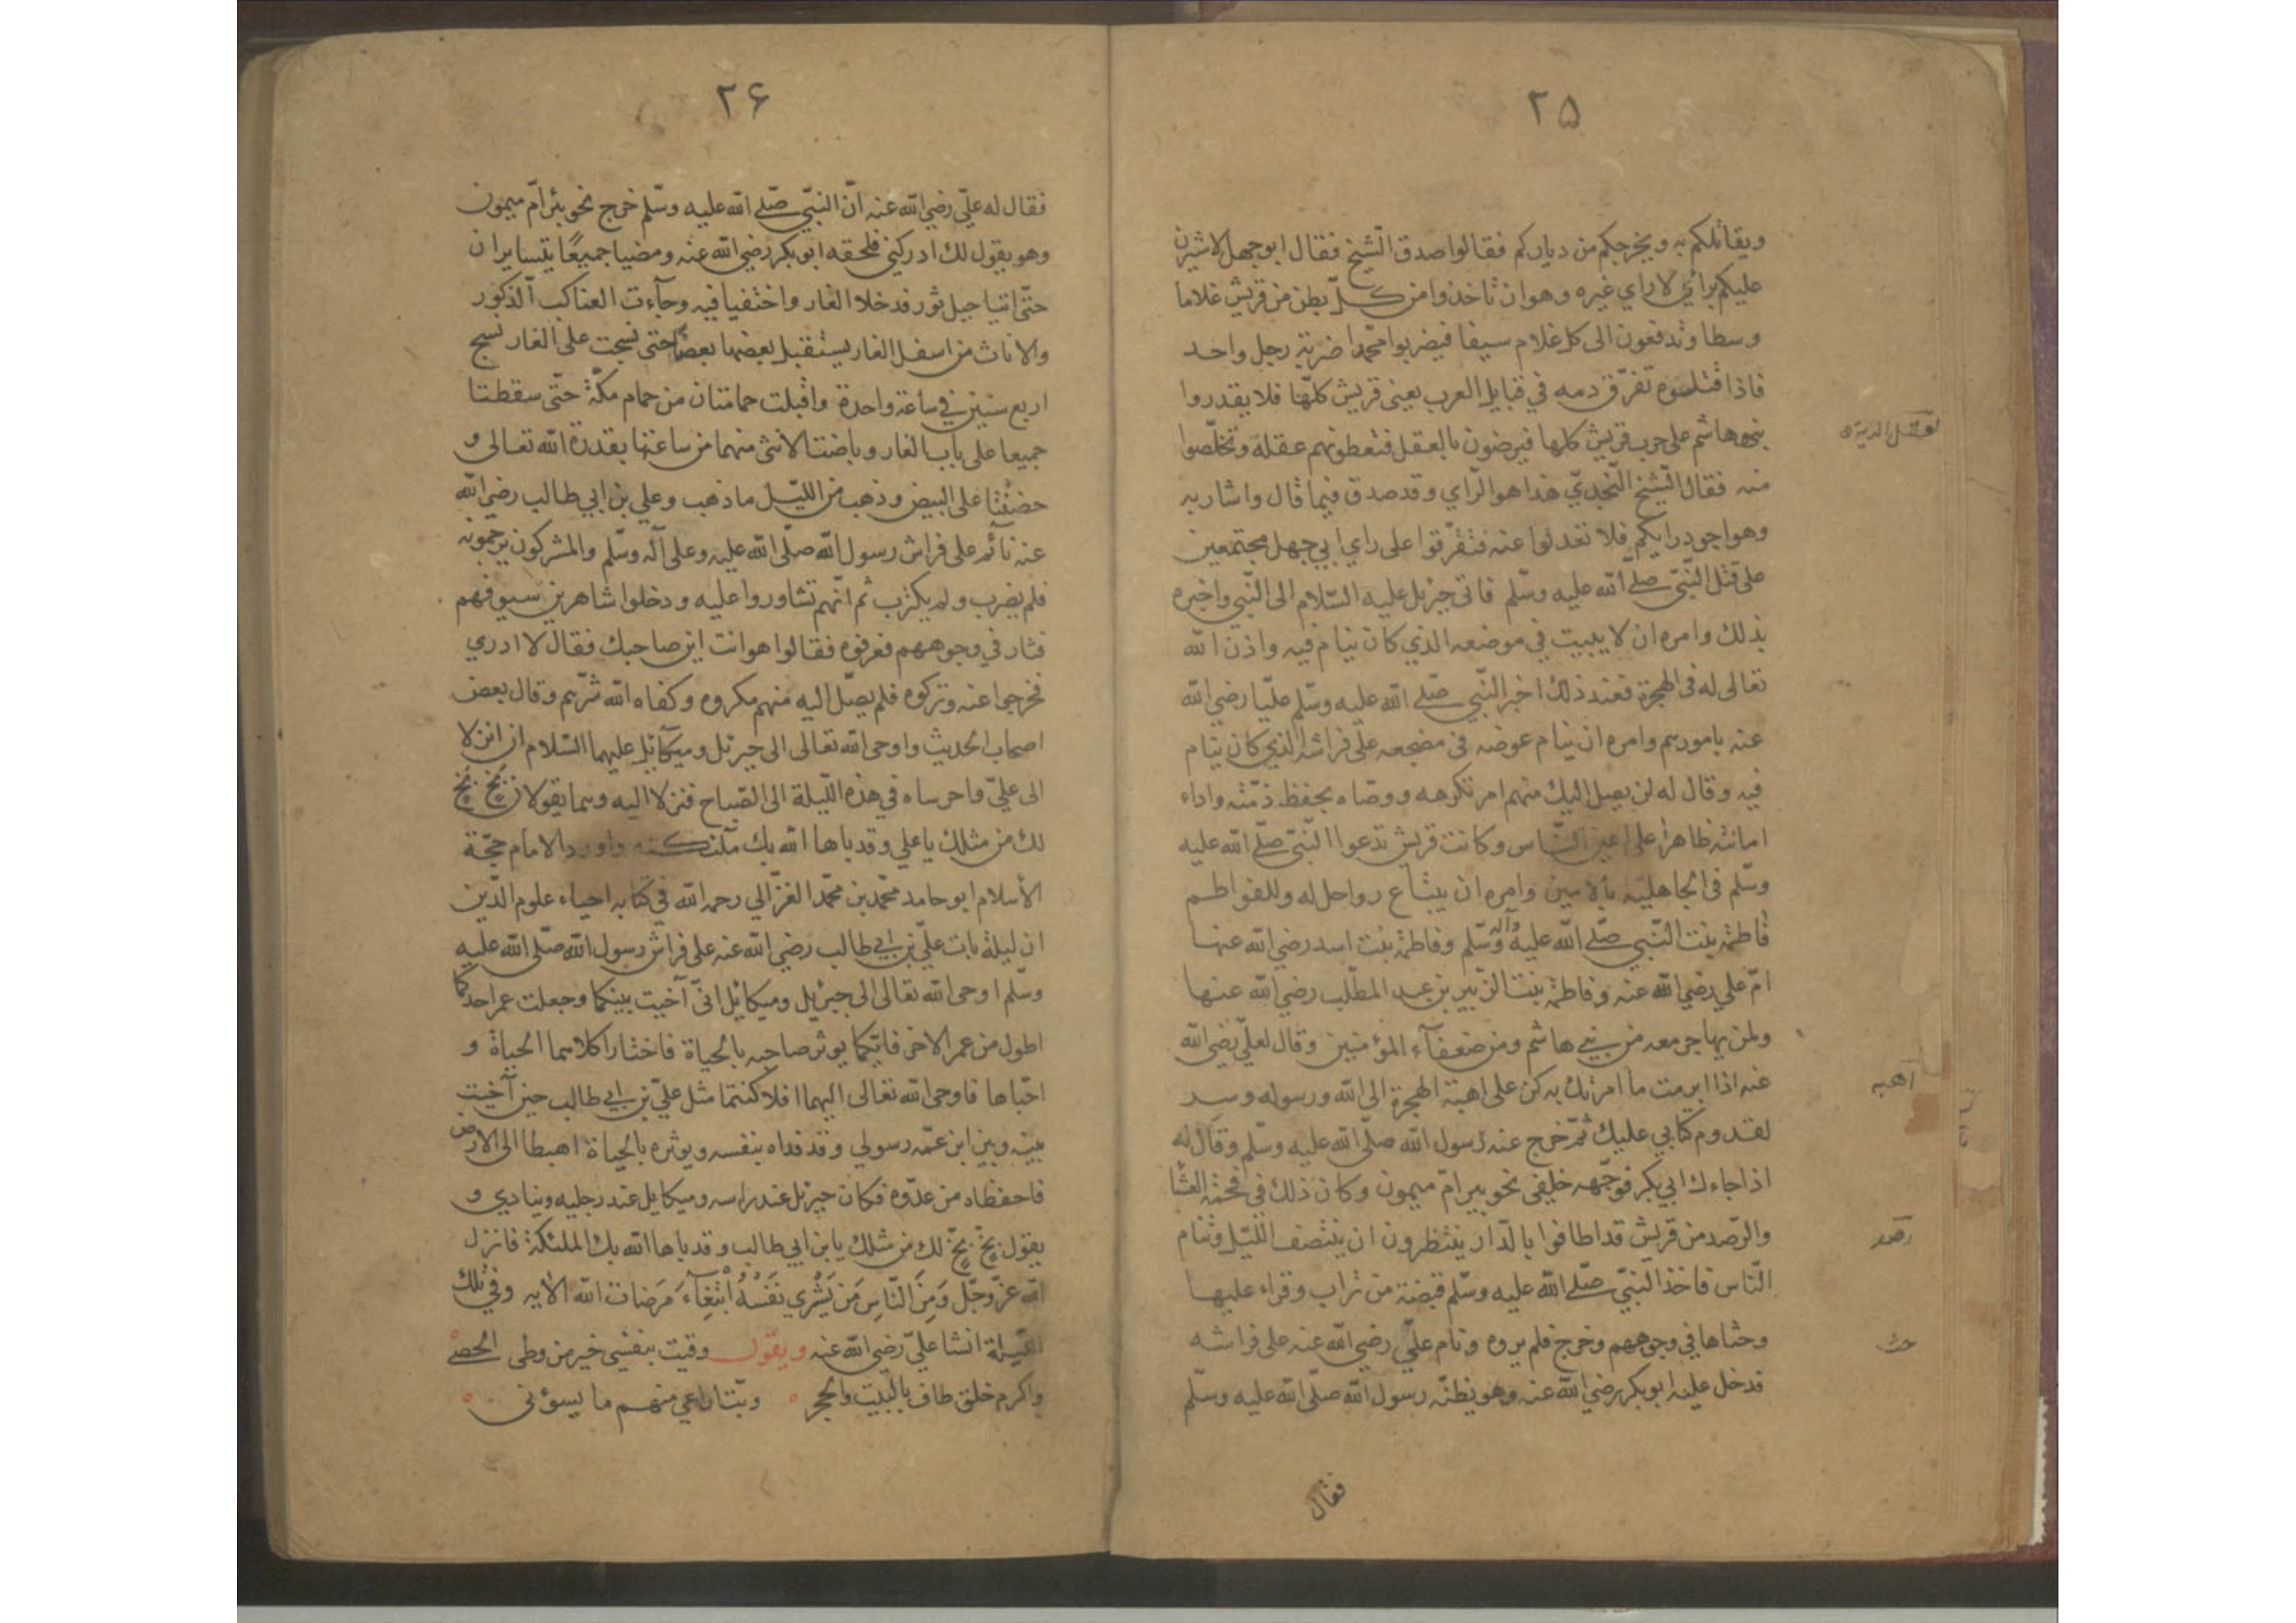 ۲۵
ويقاتلكم به ويخرجكم من دياركم فقالوا صدق الشيخ فقال ابوجهل لاشيرن
عليكم براي لا راي غيره وهو ان تاخذوا من كل بطن من قريش غلاما
وسطا وتدفعون الى كل غلام سيفا فيضربوا محمدا ضربة رجل واحد
فاذا قتلوه تفرق دمه في قبايل العرب يعنى قريش كلها فلا يقدروا
بنو هاشم على حرب قريش كلها فيرضون بالعقل فتعطونهم عقلة وتخلصوا
العقل الدية
منه فقال الشيخ النجدي هذا هو الراي وقد صدق فيما قال واشار به
وهو اجود رايكم فلا تعدلوا عنه فتفرقوا على راي ابي جهل مجتمعين
على قتل النبي صلى الله عليه وسلم فاتى جبرئل عليه السلام الى النبي واخبره
بذلك وامره ان لا يبيت في موضعه الذي كان ينام فيه واذن الله
تعالى له فى الهجرة فعند ذلك اخبر النبي صلى الله عليه وسلم عليا رضي الله
عنه بامورهم وامره ان ينام عوضه فى مضجعه على فراشه الذي كان ينام
فيه وقال له لن يصل اليك منهم امر تكرهه ووصاه بحفظ ذمته واداء
امانته ظاهرا على اعين الناس وكانت قريش تدعوا النبي صلى الله عليه
وسلم فى الجاهلية بالامين وامره ان يبتاع رواحل له وللفواطم
فاطمة بنت النبي صلى الله عليه وآله وسلم وفاطمة بنت اسد رضي الله عنها
ام علي رضي الله عنه وفاطمة بنت الزبير بن عبد المطلب رضي الله عنها
ولمن يهاجر معه من بني هاشم ومن ضعفاء المؤمنين وقال لعلي رضي الله
عنه اذا ابرمت ما امرتك به كن على اهبة الهجرة الى الله ورسوله وسر
اهبه
لقدوم كتابي عليك ثم خرج عنه رسول الله صلى الله عليه وسلم وقال له
اذا جاءك ابي بكر فوجهه خليفى نحو بير ام ميمون وكان ذلك في فحمة العشا
والرصد من قريش قد اطافوا بالدار ينتظرون ان ينتصف الليل وتنام
رصد
الناس فاخذ النبي صلى الله عليه وسلم قبضة من تراب وقراء عليها
وحثاها في وجوههم وخرج فلم يروه ونام علي رضي الله عنه على فراشه
حث
فدخل عليه ابوبكر رضي الله عنه وهو يظنه رسول الله صلى الله عليه وسلم
فقال
۲۶
فقال له علي رضي الله عنه ان النبي صلى الله عليه وسلم خرج نحو بئر ام ميمون
وهو يقول لك ادركني فلحقه ابوبكر رضي الله عنه ومضيا جميعا يتسايران
حتى اتيا جبل ثور فدخلا الغار واختفيا فيه وجاءت العناكب الذكور
والاناث من اسفل الغار يستقبل بعضها بعضا حتى نسجت على الغار نسج
اربع سنين في ساعة واحدة واقبلت حمامتان من حمام مكة حتى سقطتا
جميعا على باب الغار وباضتا الانثى منهما من ساعتها بقدرة الله تعالى و
حضنتا على البيض وذهب من الليل ما ذهب وعلي بن ابي طالب رضي الله
عنه نائم على فراش رسول الله صلى الله عليه وعلى آله وسلم والمشركون يرجمونه
فلم يضرب ولم يكترب ثم انهم تشاوروا عليه ودخلوا شاهرين سيوفهم
فثار في وجوههم فعرفوه فقالوا هو انت اين صاحبك فقال لا ادري
فخرجوا عنه وتركوه فلم يصل اليه منهم مكروه وكفاه الله شرهم وقال بعض
اصحاب الحديث واوحى الله تعالى الى جبرئل وميكائل عليهما السلام ان انزلا
الى علي واحرساه في هذه الليلة الى الصباح فنزلا اليه وهما يقولان بخ بخ
لك من مثلك يا علي وقد باها الله بك ملئكته واورد الامام حجة
الاسلام ابو حامد محمد بن محمد الغزالي رحمه الله في كتابه احياء علوم الدين
ان ليلة بات علي بن ابي طالب رضي الله عنه على فراش رسول الله صلى الله عليه
وسلم اوحى الله تعالى الى جبرئيل وميكائل انى آخيت بينكما وجعلت عمر احدكما
اطول من عمر الاخر فايكما يوثر صاحبه بالحياة فاختارا كلاهما الحياة و
احباها فاوحى الله تعالى اليهما افلا كنتما مثل علي بن ابي طالب حين آخيت
بينه وبين ابن عمه رسولي وقد فداه بنفسه ويوثره بالحياة اهبطا الى الارض
فاحفظاه من عدوه فكان جبرئل عند راسه وميكايل عند رجليه وينادي و
يقول بخ بخ لك من مثلك يا بن ابي طالب وقد باها الله بك الملئكة فانزل
الله عز وجل وَمِنَ النَّاسِ مَن يَشْرِي نَفْسَهُ ابْتِغَاءَ مَرضات الله الايه وفي تلك
الليلة انشا علي رضي الله عنه ويقول وقيت بنفسي خير من وطى الحصى
واكرم خلق طاف بالبيت والحجر وبتّ اراعي منهم ما يسوءنى